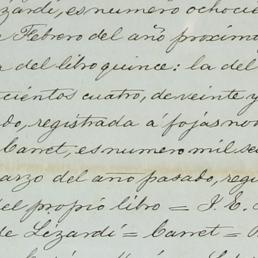 izardi, es numero ochocie
Febrero del año proximo
del libro quince: la del
cientos cuatro, de veinte y
do, registrada á fojas no
Carret, es numero mil se
arzo del año pasado, regi
el propio libro = J. E.
de Lizardi = Carret =